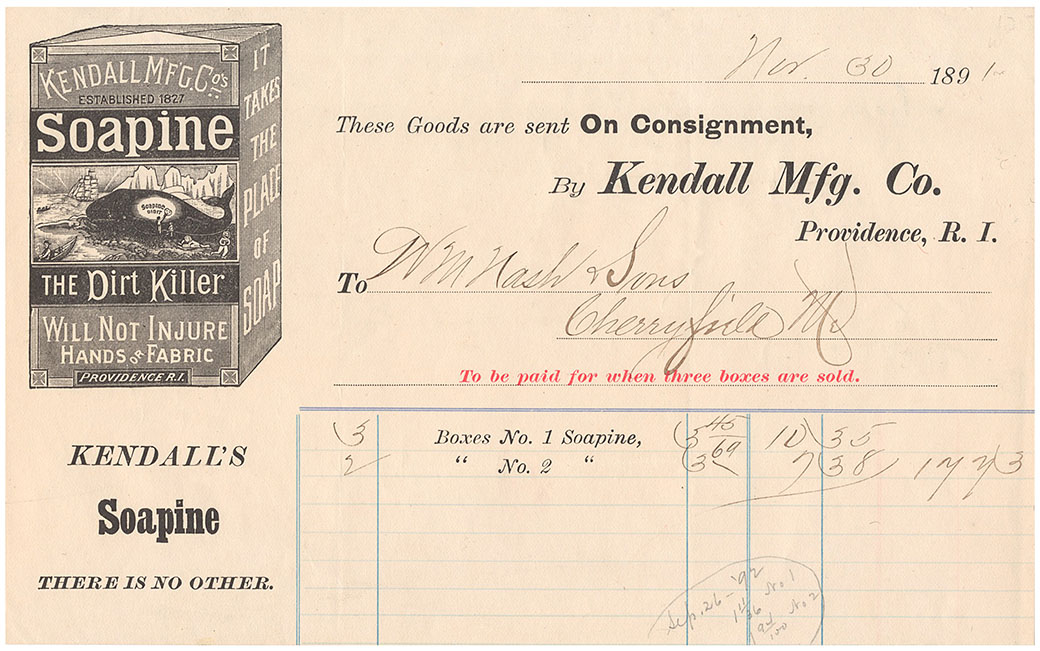 KENDALL MFG. Co's
ESTABLISHED 1827
Soapine
SOAPINE
DID IT
THE Dirt Killer
WILL NOT INJURE
HANDS OR FABRIC
PROVIDENCE R.I.
IT TAKES THE PLACE OF SOAP
KENDALL'S
Soapine
THERE IS NO OTHER.
Nov. 30 1891
These Goods are sent On Consignment,
By Kendall Mfg. Co.
Providence, R. I.
To Wm Nash & Sons
Cherryfield Me
To be paid for when three boxes are sold.
3 Boxes No. 1 Soapine, 3 45 10 35
2 “ No. 2 “ 3 69 7 38 17 73
Sep. 26 - '92
No. 1
No 2